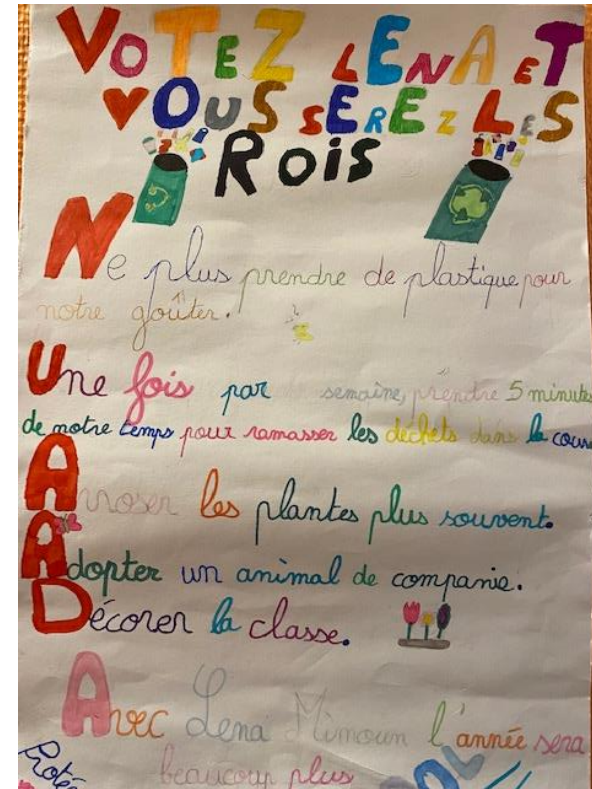 VOTEZ LENA ET
VOUS SEREZ LES
ROIS
Ne plus prendre de plastique pour
notre goûter.
Une fois par semaine, prendre 5 minutes
de notre temps pour ramasser les déchets dans la cour
Arroser les plantes plus souvent.
Adopter un animal de companie.
Décorer la classe.
Avec Lena Mimoun l'année sera
beaucoup plus